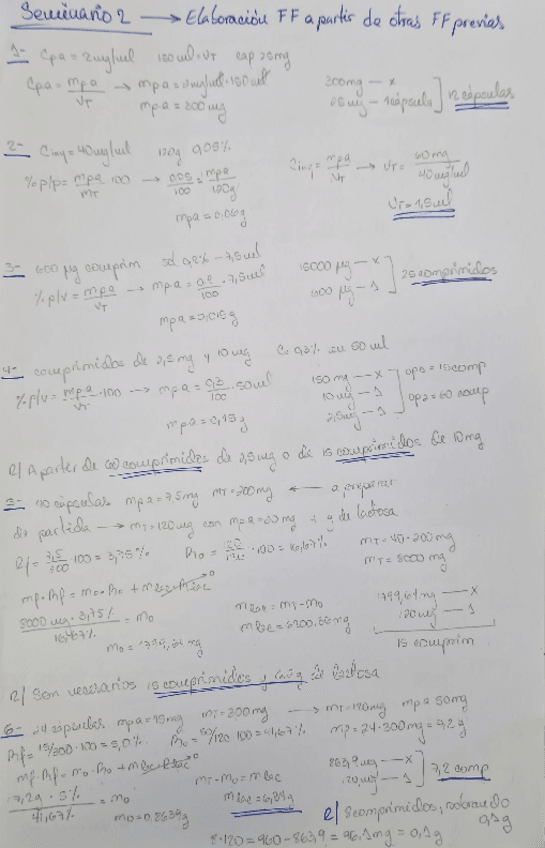 Seminario 2 → Elaboración FF a partir de otras FF previas
1- Cpa = 2mg/ml 150ml = VT cap 25mg
Cpa = mpa/VT → mpa = 2mg/ml · 150ml
mpa = 300mg
300mg — x
25mg — 1 cápsula
12 cápsulas
2- Ciny = 40mg/ml 120g 0,05%
%p/p = mpa/mT · 100 → 0,05/100 = mpa/120g
mpa = 0,06g
Ciny = mpa/VT → VT = 60mg/40mg/ml
VT = 1,5ml
3- 600 µg comprim sol 0,2% - 7,5ml
%p/v = mpa/VT → mpa = 0,2/100 · 7,5ml
mpa = 0,015g
15000 µg — x
600 µg — 1
25 comprimidos
4- comprimidos de 2,5mg y 10mg C = 0,3% en 50ml
%p/v = mpa/VT · 100 → mpa = 0,3/100 · 50ml
mpa = 0,15g
150mg — x
10mg — 1
2,5mg — 1
op1 = 15comp
op2 = 60 comp
R/ A partir de 60 comprimidos de 2,5mg o de 15 comprimidos de 10mg
5- 40 cápsulas mpa = 7,5mg mT = 200mg ← a preparar
de partida → mT = 120mg con mpa = 20mg ¿g de lactosa
Rf = 7,5/200 · 100 = 3,75% Ro = 20/120 · 100 = 16,67%
mT = 40 · 200mg
mT = 8000mg
mf · Rf = mo · Ro + mlac · Rlac 0
8000mg · 3,75%/16,67% = mo
mo = 1799,64mg
mlac = mT - mo
mlac = 6200,36mg
1799,64mg — x
120mg — 1
15 comprim
R/ Son necesarios 15 comprimidos y 6,2g de lactosa
6- 24 cápsulas mpa = 15mg mT = 300mg → mT = 120mg mpa 50mg
Rf = 15/300 · 100 = 5,0% Ro = 50/120 · 100 = 41,67% mf = 24 · 300mg = 7,2g
mf · Rf = mo · Ro + mlac · Rlac 0
7,2g · 5%/41,67% = mo
mo = 0,8639g
mT - mo = mlac
mlac = 6,34g
863,9mg — x
120mg — 1
7,2 comp
R/ 8 comprimidos, sobrando
0,1g
8 · 120 = 960 - 863,9 = 96,1mg = 0,1g